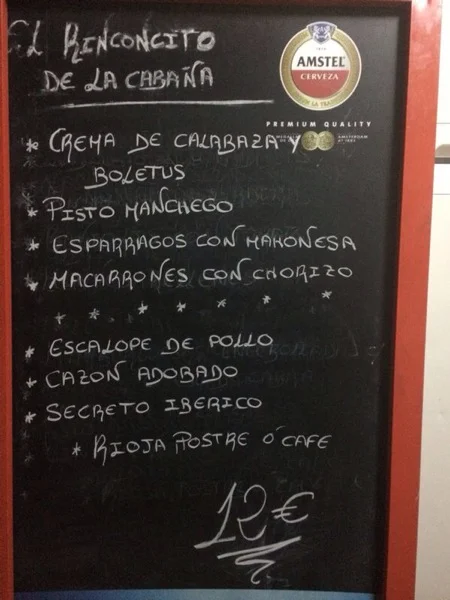 EL RINCONCITO
DE LA CABAÑA
AMSTEL
CERVEZA
PREMIUM QUALITY
* CREMA DE CALABAZA Y
BOLETUS
* PISTO MANCHEGO
* ESPARRAGOS CON MAHONESA
* MACARRONES CON CHORIZO
* * * * * * *
* ESCALOPE DE POLLO
* CAZON ADOBADO
* SECRETO IBERICO
* RIOJA POSTRE O' CAFE
12€